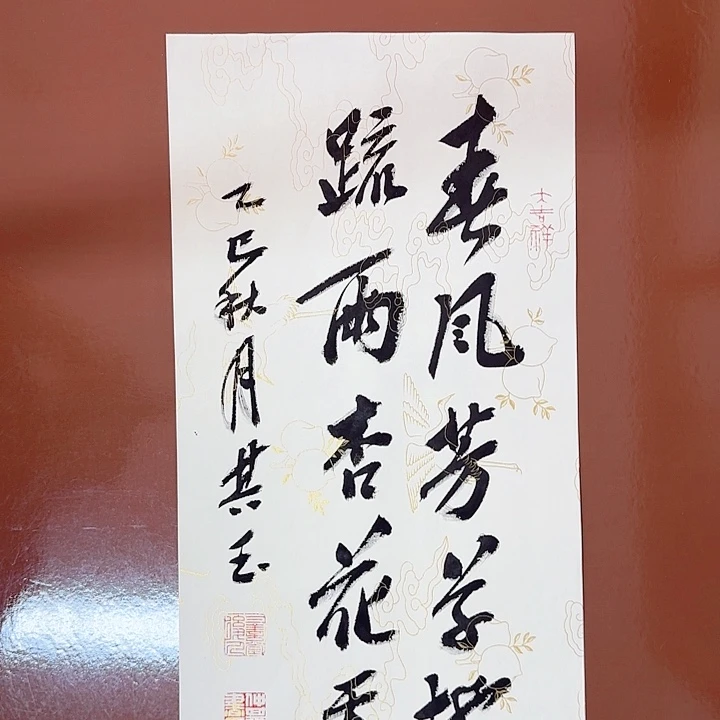 春风芳草
疏雨杏花
乙巳秋月其玉
大吉祥